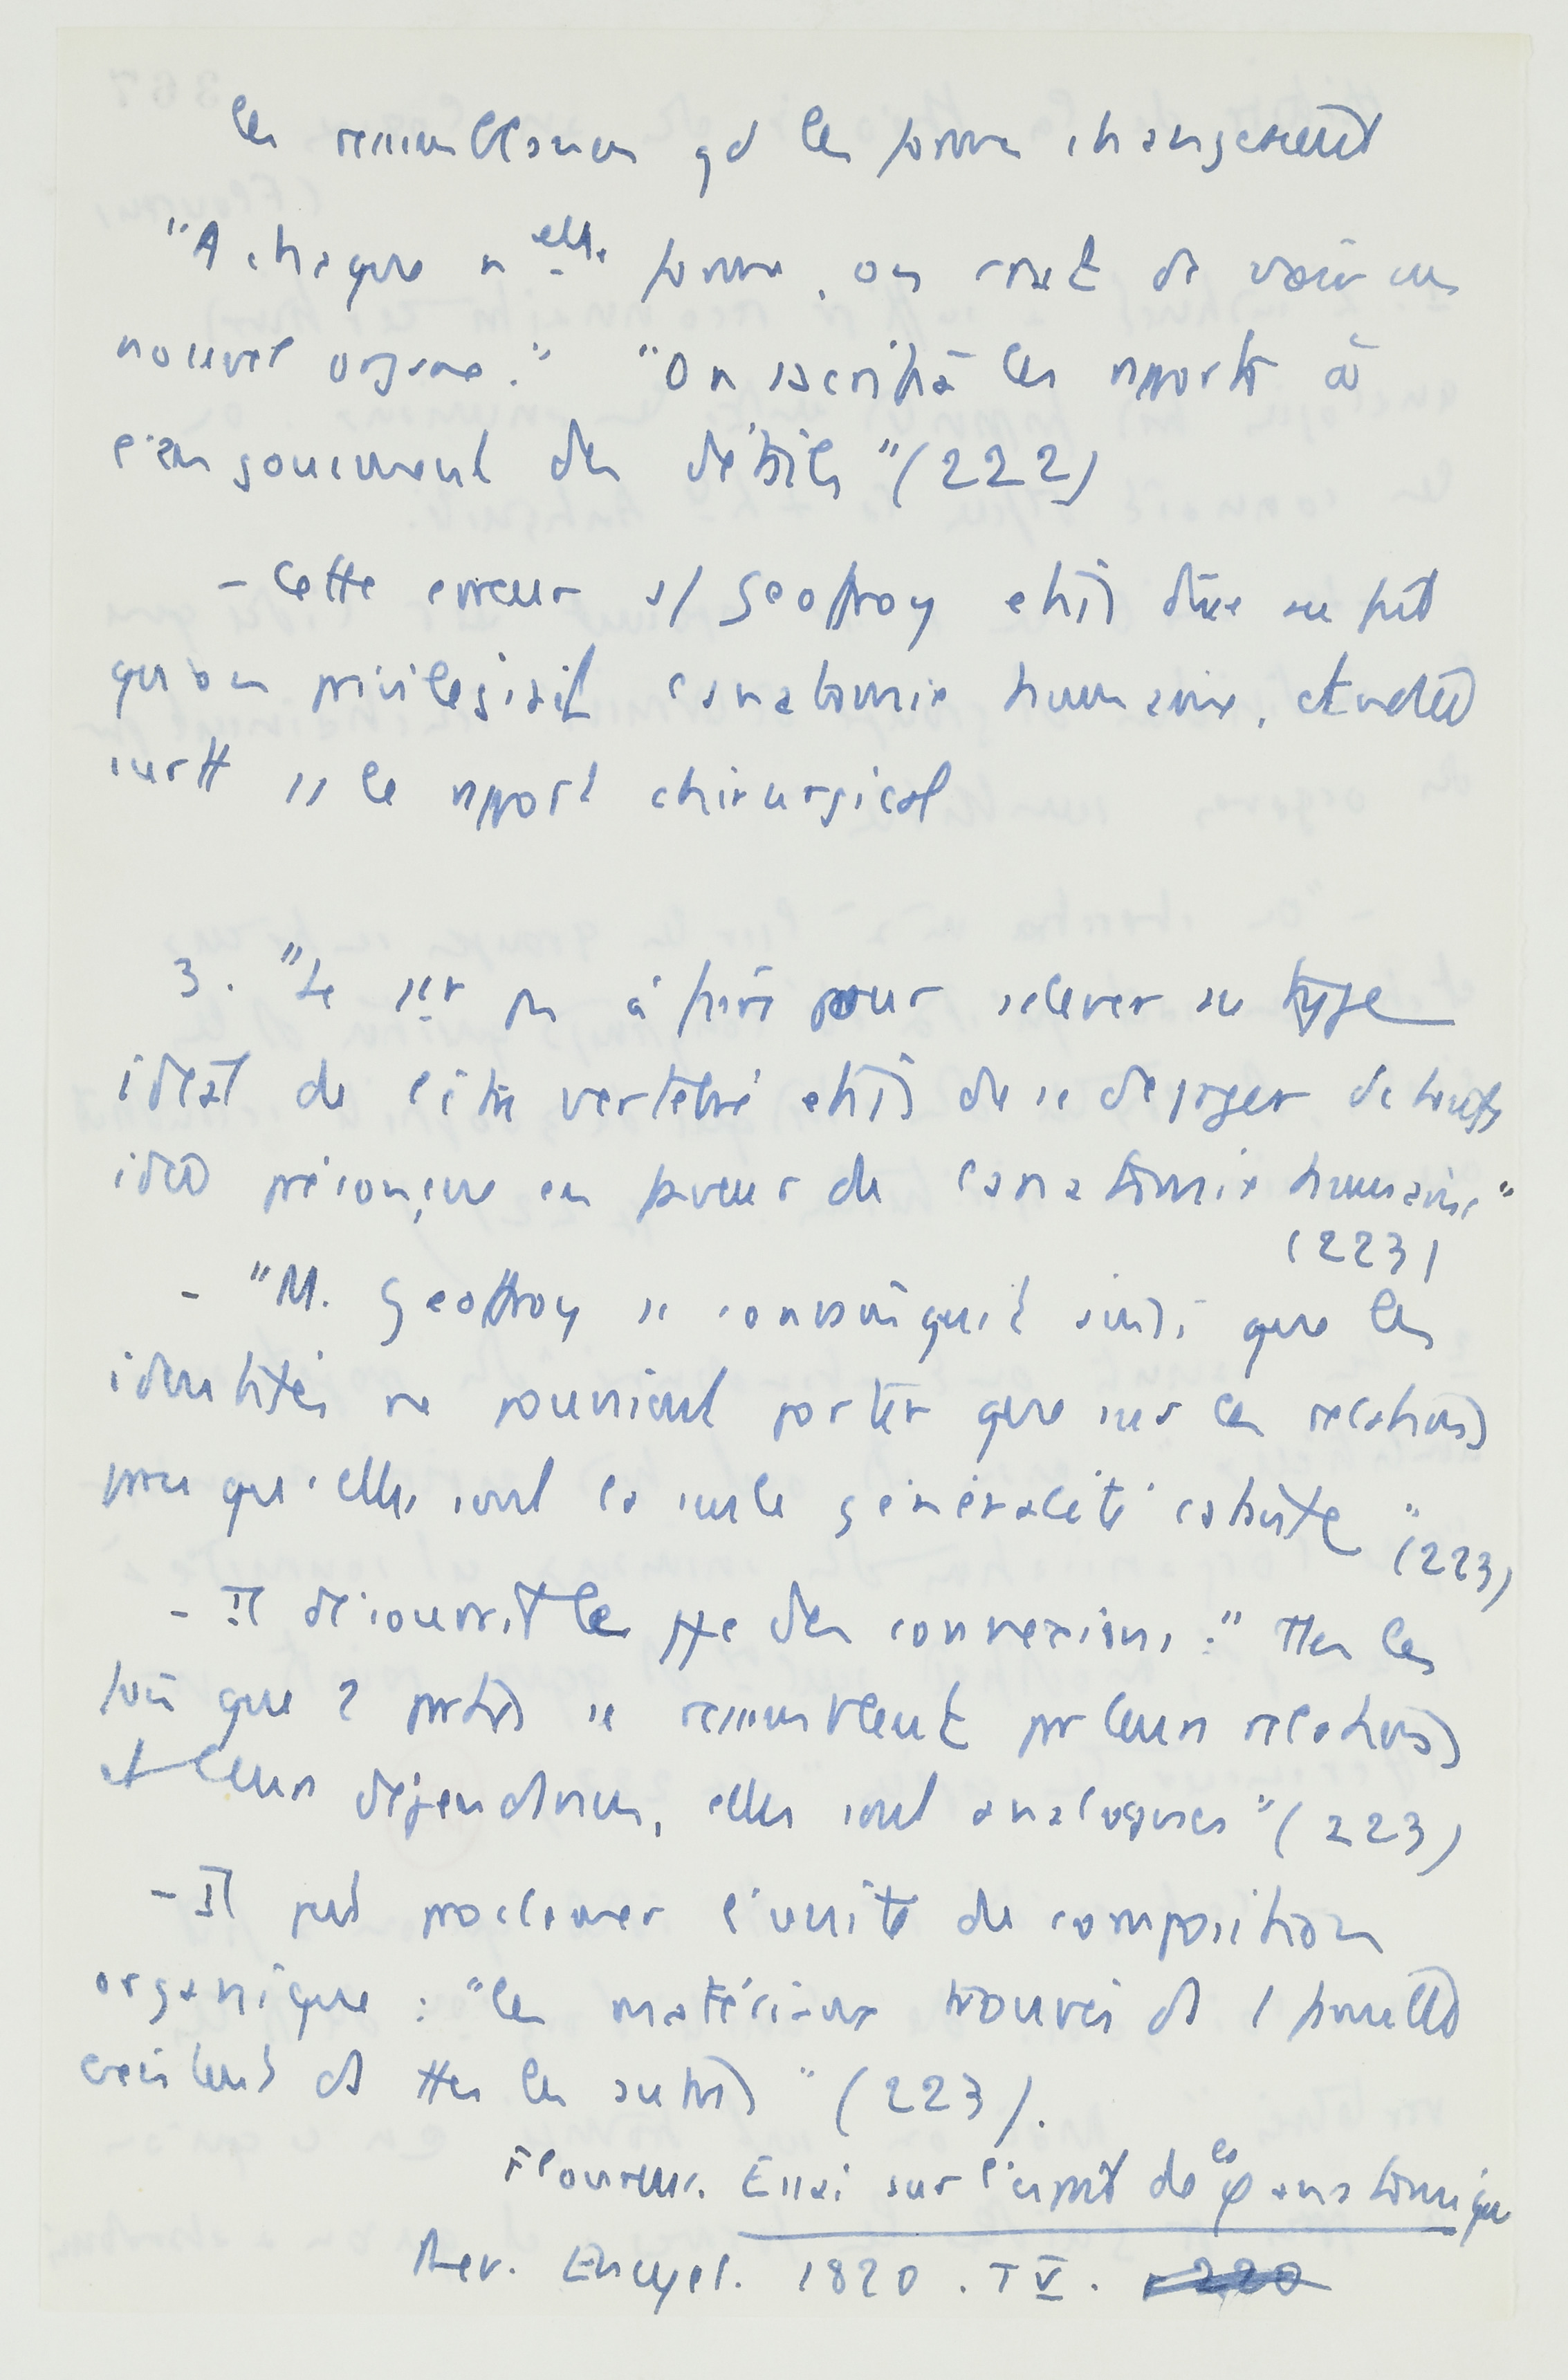 les ressemblances qd les formes changeaient
"A chaque nelle forme, on croit de voir un
nouvel organe." "On sacrifia les rapports à
l'engouement des détails" (222)
- Cette erreur s/ Geoffroy était dûe au fait
qu'on privilégiait l'anatomie humaine, étudiée
surtt ss le rapport chirurgical
3. "Le 1er pas à faire pour s'élever au type
idéal de l'être vertébré était de se dégager de toutes
idées préconçues en faveur de l'anatomie humaine"
(223)
- "M. Geoffroy se convainquit ainsi que les
identités ne pouvaient porter que sur les relations
puisqu'elles sont la seule généralité constante" (223)
- Il découvrit le ppe des connexions : "Ttes les
fois que 2 parties se ressemblent par leurs relations
et leurs dépendances, elles sont analogues" (223)
- Il put proclamer l'unité de composition
organique : "les matériaux trouvés ds 1 famille
existent ds ttes les autres" (223).
Flourens. Essai sur l'esprit de la φ anatomique
Rev. Encycl. 1820. T V.